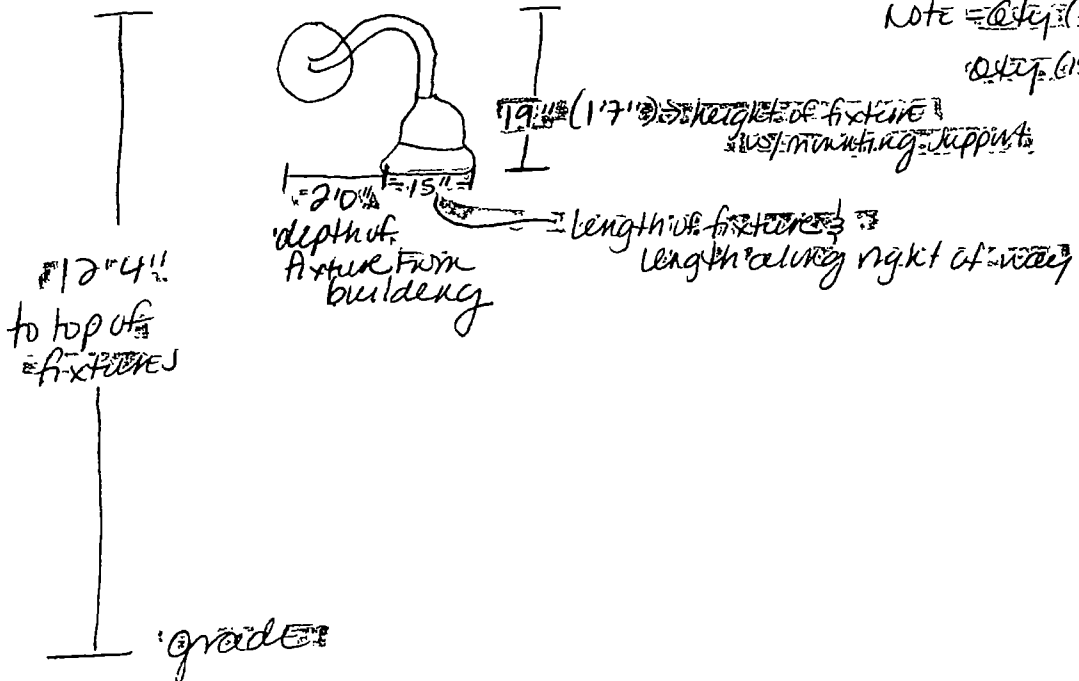 Note = Qty (
Qty (1
19" (1'7") height of fixture
w/ mounting support
=2'0"
=15"
depth of
fixture from
building
length of fixture &
length along right of way
12'4"
to top of
fixtures
grade